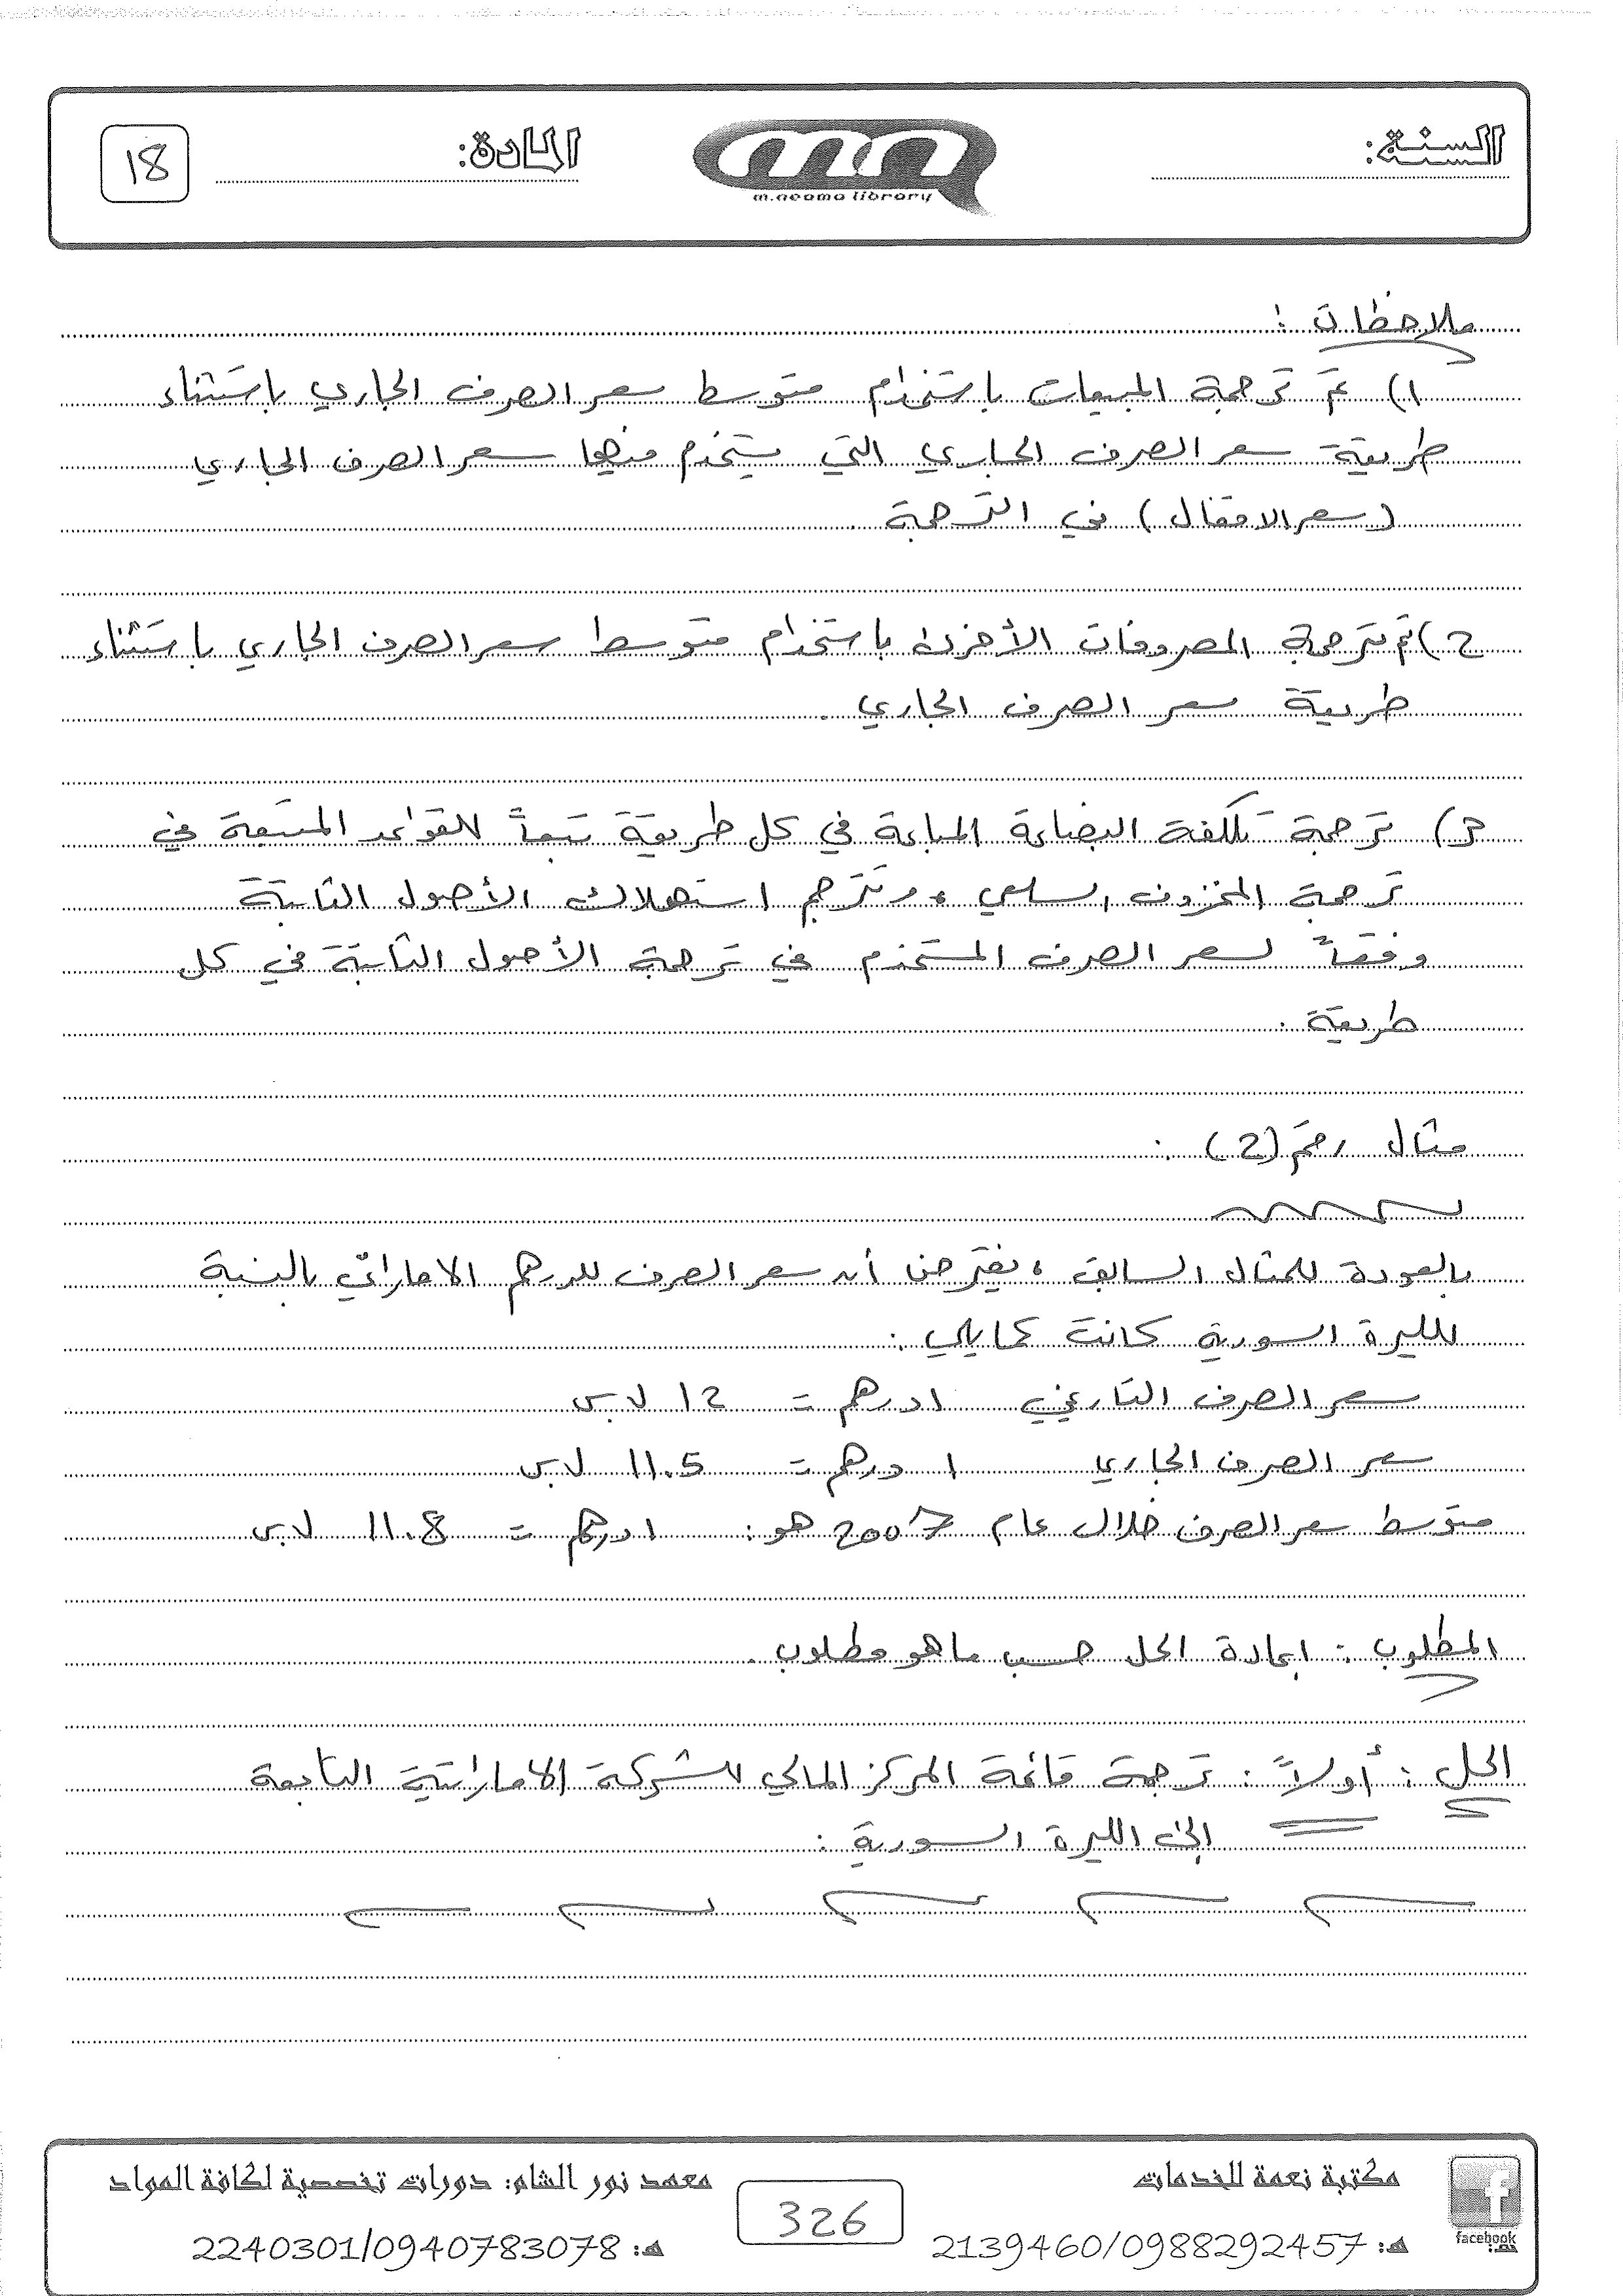 السنة:
m.neama library
المادة:
18
ملاحظات :
1) تم ترجمة المبيعات باستخدام متوسط سعر الصرف الجاري باستثناء
طريقة سعر الصرف الجاري التي يستخدم منها سعر الصرف الجاري
(سعر الاقفال) في الترجمة
2) تم ترجمة المصروفات الأخرى باستخدام متوسط سعر الصرف الجاري باستثناء
طريقة سعر الصرف الجاري .
3) ترجمة تكلفة البضاعة المباعة في كل طريقة تبعاً للقواعد المتبعة في
ترجمة المخزون السلعي ، وتترجم استهلاك الأصول الثابتة
وفقاً لسعر الصرف المستخدم في ترجمة الأصول الثابتة في كل
طريقة .
مثال رقم (2) :
بالعودة للمثال السابق ، نفترض أن سعر الصرف للدرهم الاماراتي بالنسبة
لليرة السورية كانت كما يلي :
سعر الصرف التاريخي 1 درهم = 12 ل.س
سعر الصرف الجاري 1 درهم = 11.5 ل.س
متوسط سعر الصرف خلال عام 2007 هو : 1 درهم = 11.8 ل.س
المطلوب : اعادة الحل حسب ما هو مطلوب .
الحل : أولاً : ترجمة قائمة المركز المالي للشركة الاماراتية التابعة
إلى الليرة السورية :
مكتبة نعمة للخدمات
هـ: 2139460/0988292457
facebook
326
معهد نور الشام: دورات تخصصية لكافة المواد
هـ: 2240301/0940783078